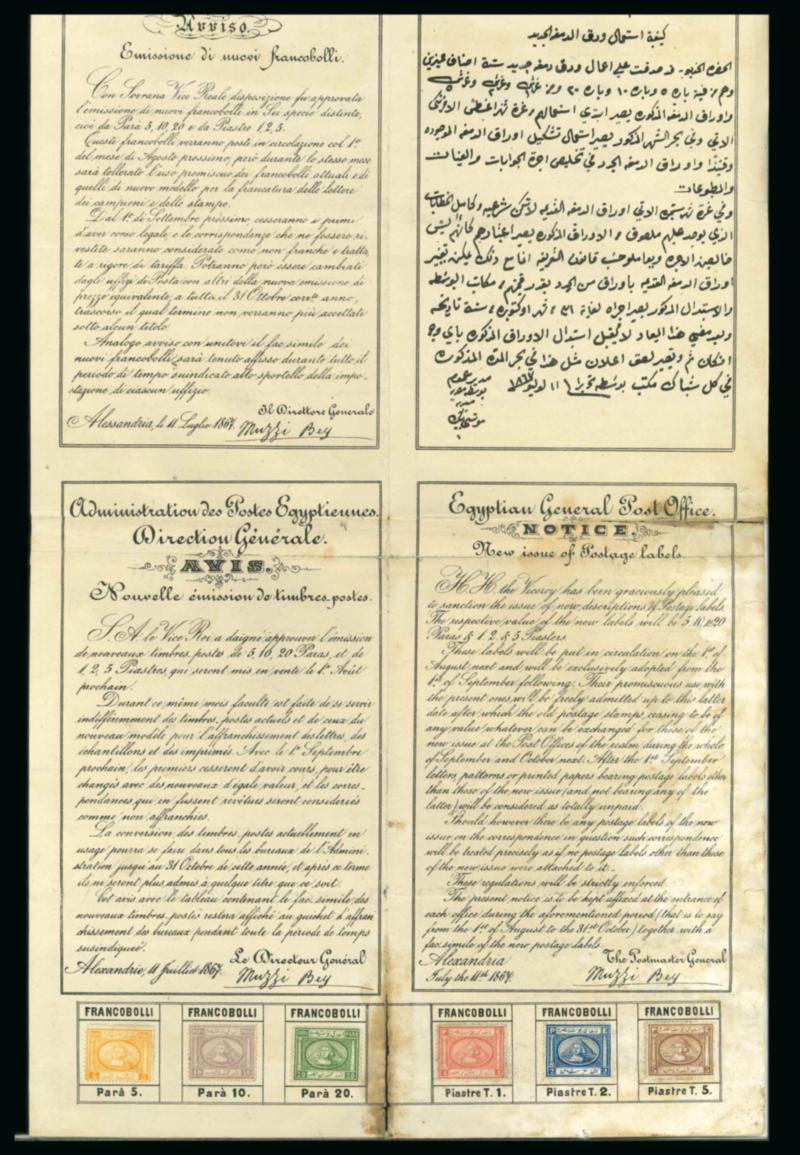 Avviso.
Emissione di nuovi francobolli.
Con Sovrana Vice Reale disposizione fu approvata
l'emissione di nuovi francobolli in Sei specie distinte,
cioè da Parà 5, 10, 20 e da Piastre 1, 2, 5.
Questi francobolli verranno posti in circolazione col 1º
del mese di Agosto prossimo, però durante lo stesso mese
sarà tollerato l'uso promiscuo dei francobolli attuali e di
quelli di nuovo modello per la francatura delle lettere
dei campioni e delle stampe.
Dal 1º di Settembre prossimo, cesseranno i primi
d'aver corso legale, e le corrispondenze che ne fossero ri-
vestite saranno considerate come non franche e tratta-
te a rigore di tariffa. Potranno però essere cambiati
dagli uffizi di Posta con altri della nuova emissione di
prezzo equivalente, a tutto il 31 Ottobre corrte anno,
trascorso il qual termine non verranno più accettate
sotto alcun titolo.
Analogo avviso con unitovi il fac simile dei
nuovi francobolli, sarà tenuto affisso durante tutto il
periodo di tempo suindicato allo sportello della impo-
stazione di ciascun uffizio.
Il Direttore Generale
Alessandria, le 11 Luglio 1867. Muzzi Bey
كيفية استعمال ورق الدمغه الجديد
الحضره الخديويه قد صدقت على اعمال ورق دمغه جديد ستة اصناف مميزين
وهم فية باره ٥ وباره ١٠ وباره ٢٠ و١ غرش و٢ غرش و٥ غرش
واوراق الدمغه المذكوره يصير ابتدى استعمالهم غرة شهر اغسطس الافرنكى
الاتي وفي بحر الشهر المذكور يصير استعمال تشكيل اوراق الدمغه الموجوده
وقتئذا واوراق الدمغه الجدد في تخليص اجرة الجوابات والعينات
والمطبوعات
وفي غرة شهر ستمبر الاتي اوراق الدمغه القديمه
الذي يوجد عليهم ملصوق الاوراق المذكوره يصير اعتبارهم كأنهم ليس
خالصين الاجره
اوراق الدمغه القديمه باوراق من الجدد بقدر قيمتهم مكاتب البوسطه
والاستبدال المذكور يصير اجراه لغاية ٣١ شهر اكتوبر سنة تاريخه
وبعد مضي هذا الميعاد لا يقبل استبدال الاوراق المذكوره باي وجه
اعلان مثل هذا في بحر المدة المذكوره
في كل شباك مكتب بوسطه تحريرا ١١ لوليو
مدير عموم
بوسطه مصريه
Administration des Postes Egyptiennes.
Direction Générale.
AVIS.
Nouvelle émission de timbres-postes.
S. A. le Vice Roi a daigné approuver l'émission
de nouveaux timbres postes de 5, 10, 20 Paras, et de
1, 2, 5 Piastres, qui seront mis en vente le 1er Août
prochain.
Durant ce même mois faculté est faite de se servir
indifféremment des timbres postes actuels et de ceux du
nouveau modèle pour l'affranchissement des lettres, des
échantillons et des imprimés. Avec le 1er Septembre
prochain, les premiers cesseront d'avoir cours, pour être
changés avec des nouveaux d'égale valeur, et les corres-
pondances qui en fussent revêtues seront considerées
comme non affranchies.
La conversion des timbres postes actuellement en
usage pourra se faire dans tous les bureaux de l'Admini-
stration jusqu'au 31 Octobre de cette année, et après ce terme
ils ne seront plus admis à quelque titre que ce soit.
Cet avis avec le tableau contenant le fac simile des
nouveaux timbres postes restera affiché au guichet d'affran-
chissement des bureaux pendant toute la période de temps
susindiqueé.
Le Directeur Général
Alexandrie, 11 Juillet 1867. Muzzi Bey
Egyptian General Post Office.
NOTICE.
New issue of Postage labels.
H. H. the Viceroy has been graciously pleased
to sanction the issue of new descriptions of Postage labels.
The respective value of the new labels will be 5, 10, &20
Paras & 1, 2, & 5 Piasters.
These labels will be put in circulation on the 1st of
August next and will be exclusively adopted from the
1st of September following. Their promiscuous use with
the present ones will be freely admitted up to this latter
date after which the old postage stamps, ceasing to be of
any value whatever can be exchanged for those of the
new issue at the Post Offices of the realm during the whole
of September and October next. After the 1st September
letters, patterns or printed papers bearing postage labels other
than those of the new issue (and not bearing any of the
latter) will be considered as totally unpaid.
Should however there be any postage labels of the new
issue on the correspondence in question such correspondence
will be treated precisely as if no postage labels other than those
of the new issue were attached to it.
These regulations will be strictly enforced.
The present notice is to be kept affixed at the entrance of
each office during the aforementioned period (that is to say
from the 1st of August to the 31st October) together with a
fac simile of the new postage labels.
Alexandria The Postmaster General
July the 11th 1867. Muzzi Bey
FRANCOBOLLI FRANCOBOLLI FRANCOBOLLI FRANCOBOLLI FRANCOBOLLI FRANCOBOLLI
Parà 5. Parà 10. Parà 20. Piastre T. 1. Piastre T. 2. Piastre T. 5.